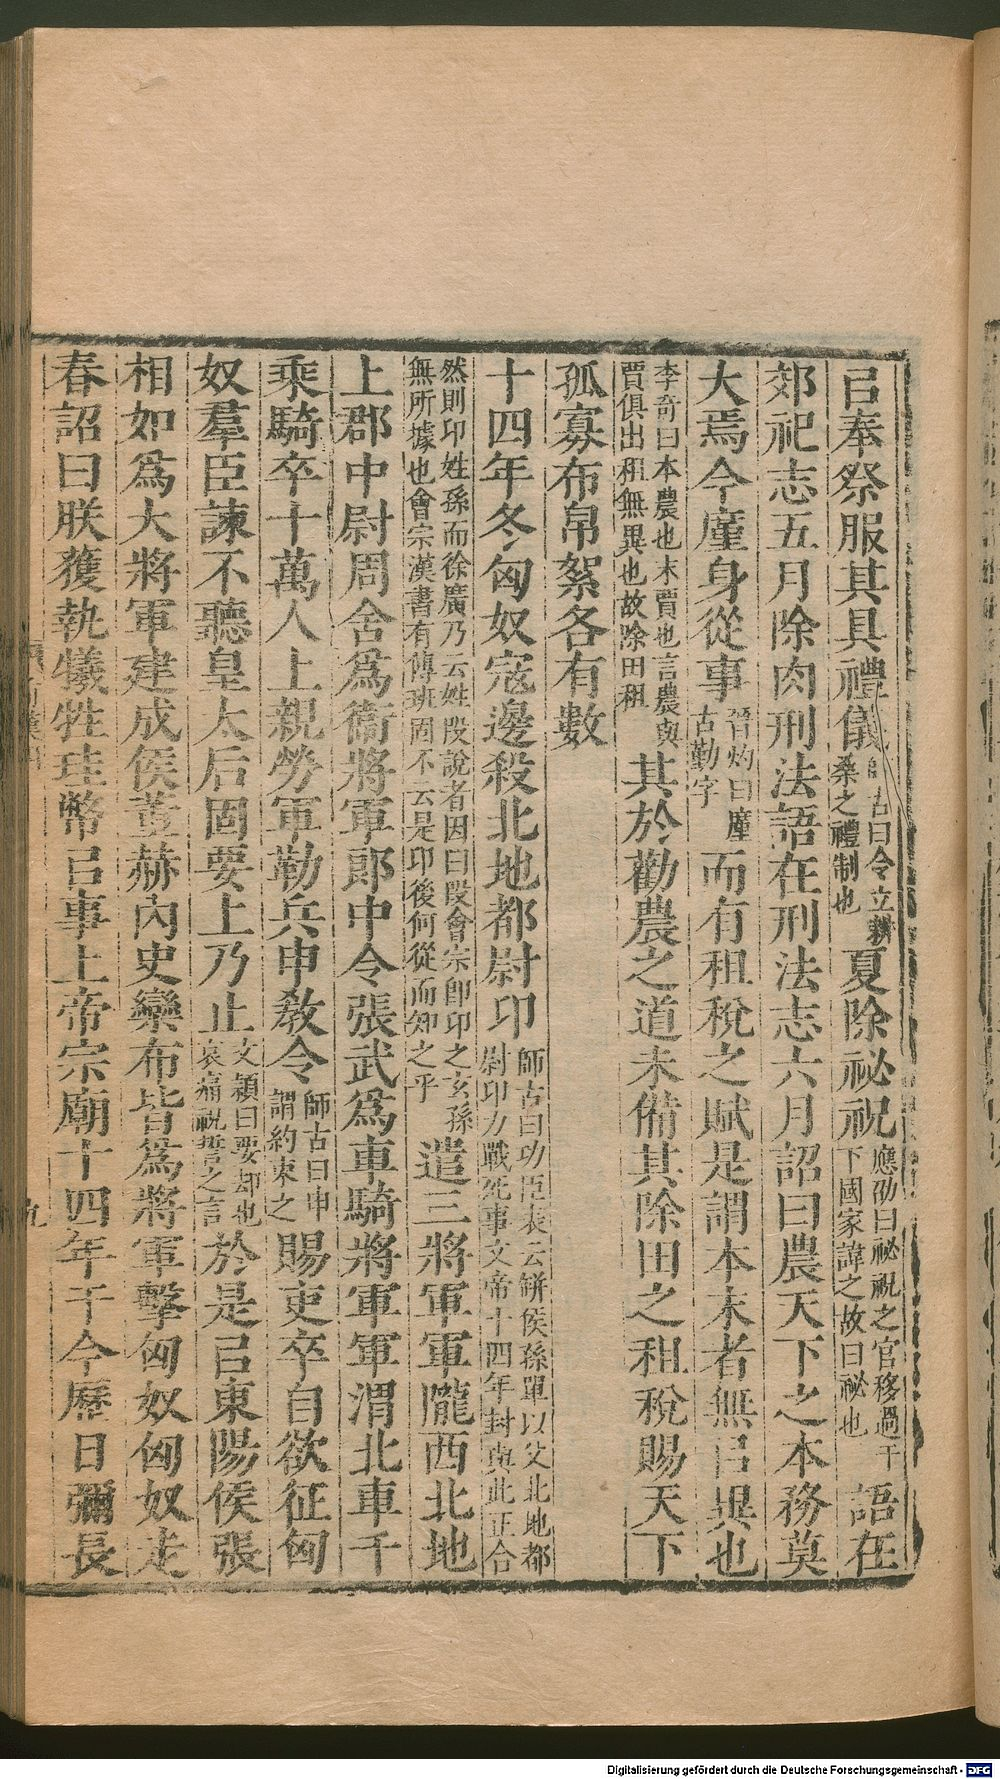 㠯奉祭服其具禮儀師古曰令立耕桑之禮制也夏除祕祝應劭曰祕祝之官移過于下國家諱之故曰祕也語在
郊祀志五月除肉刑法語在刑法志六月詔曰農天下之本務莫
大焉今廑身從事晉灼曰廑古勤字而有租稅之賦是謂本末者無㠯異也
李奇曰本農也末賈也言農與賈俱出租無異也故除田租其於勸農之道未備其除田之租稅賜天下
孤寡布帛絮各有數
十四年冬匈奴寇邊殺北地都尉卬師古曰功臣表云缾侯孫單以父北地都尉卬力戰死事文帝十四年封與此正合
然則卬姓孫而徐廣乃云姓段說者因曰段會宗卽卬之玄孫無所據也會宗漢書有傳班固不云是卬後何從而知之乎遣三將軍軍隴西北地
上郡中尉周舍爲衞將軍郎中令張武爲車騎將軍軍渭北車千
乘騎卒十萬人上親勞軍勒兵申敎令師古曰申謂約束之賜吏卒自欲征匈
奴羣臣諫不聽皇太后固要上乃止文穎曰要却也哀痛祝誓之言於是㠯東陽侯張
相如爲大將軍建成侯董赫內史欒布皆爲將軍擊匈奴匈奴走
春詔曰朕獲執犧牲珪幣㠯事上帝宗廟十四年于今歷日彌長
九
Digitalisierung gefördert durch die Deutsche Forschungsgemeinschaft - DFG